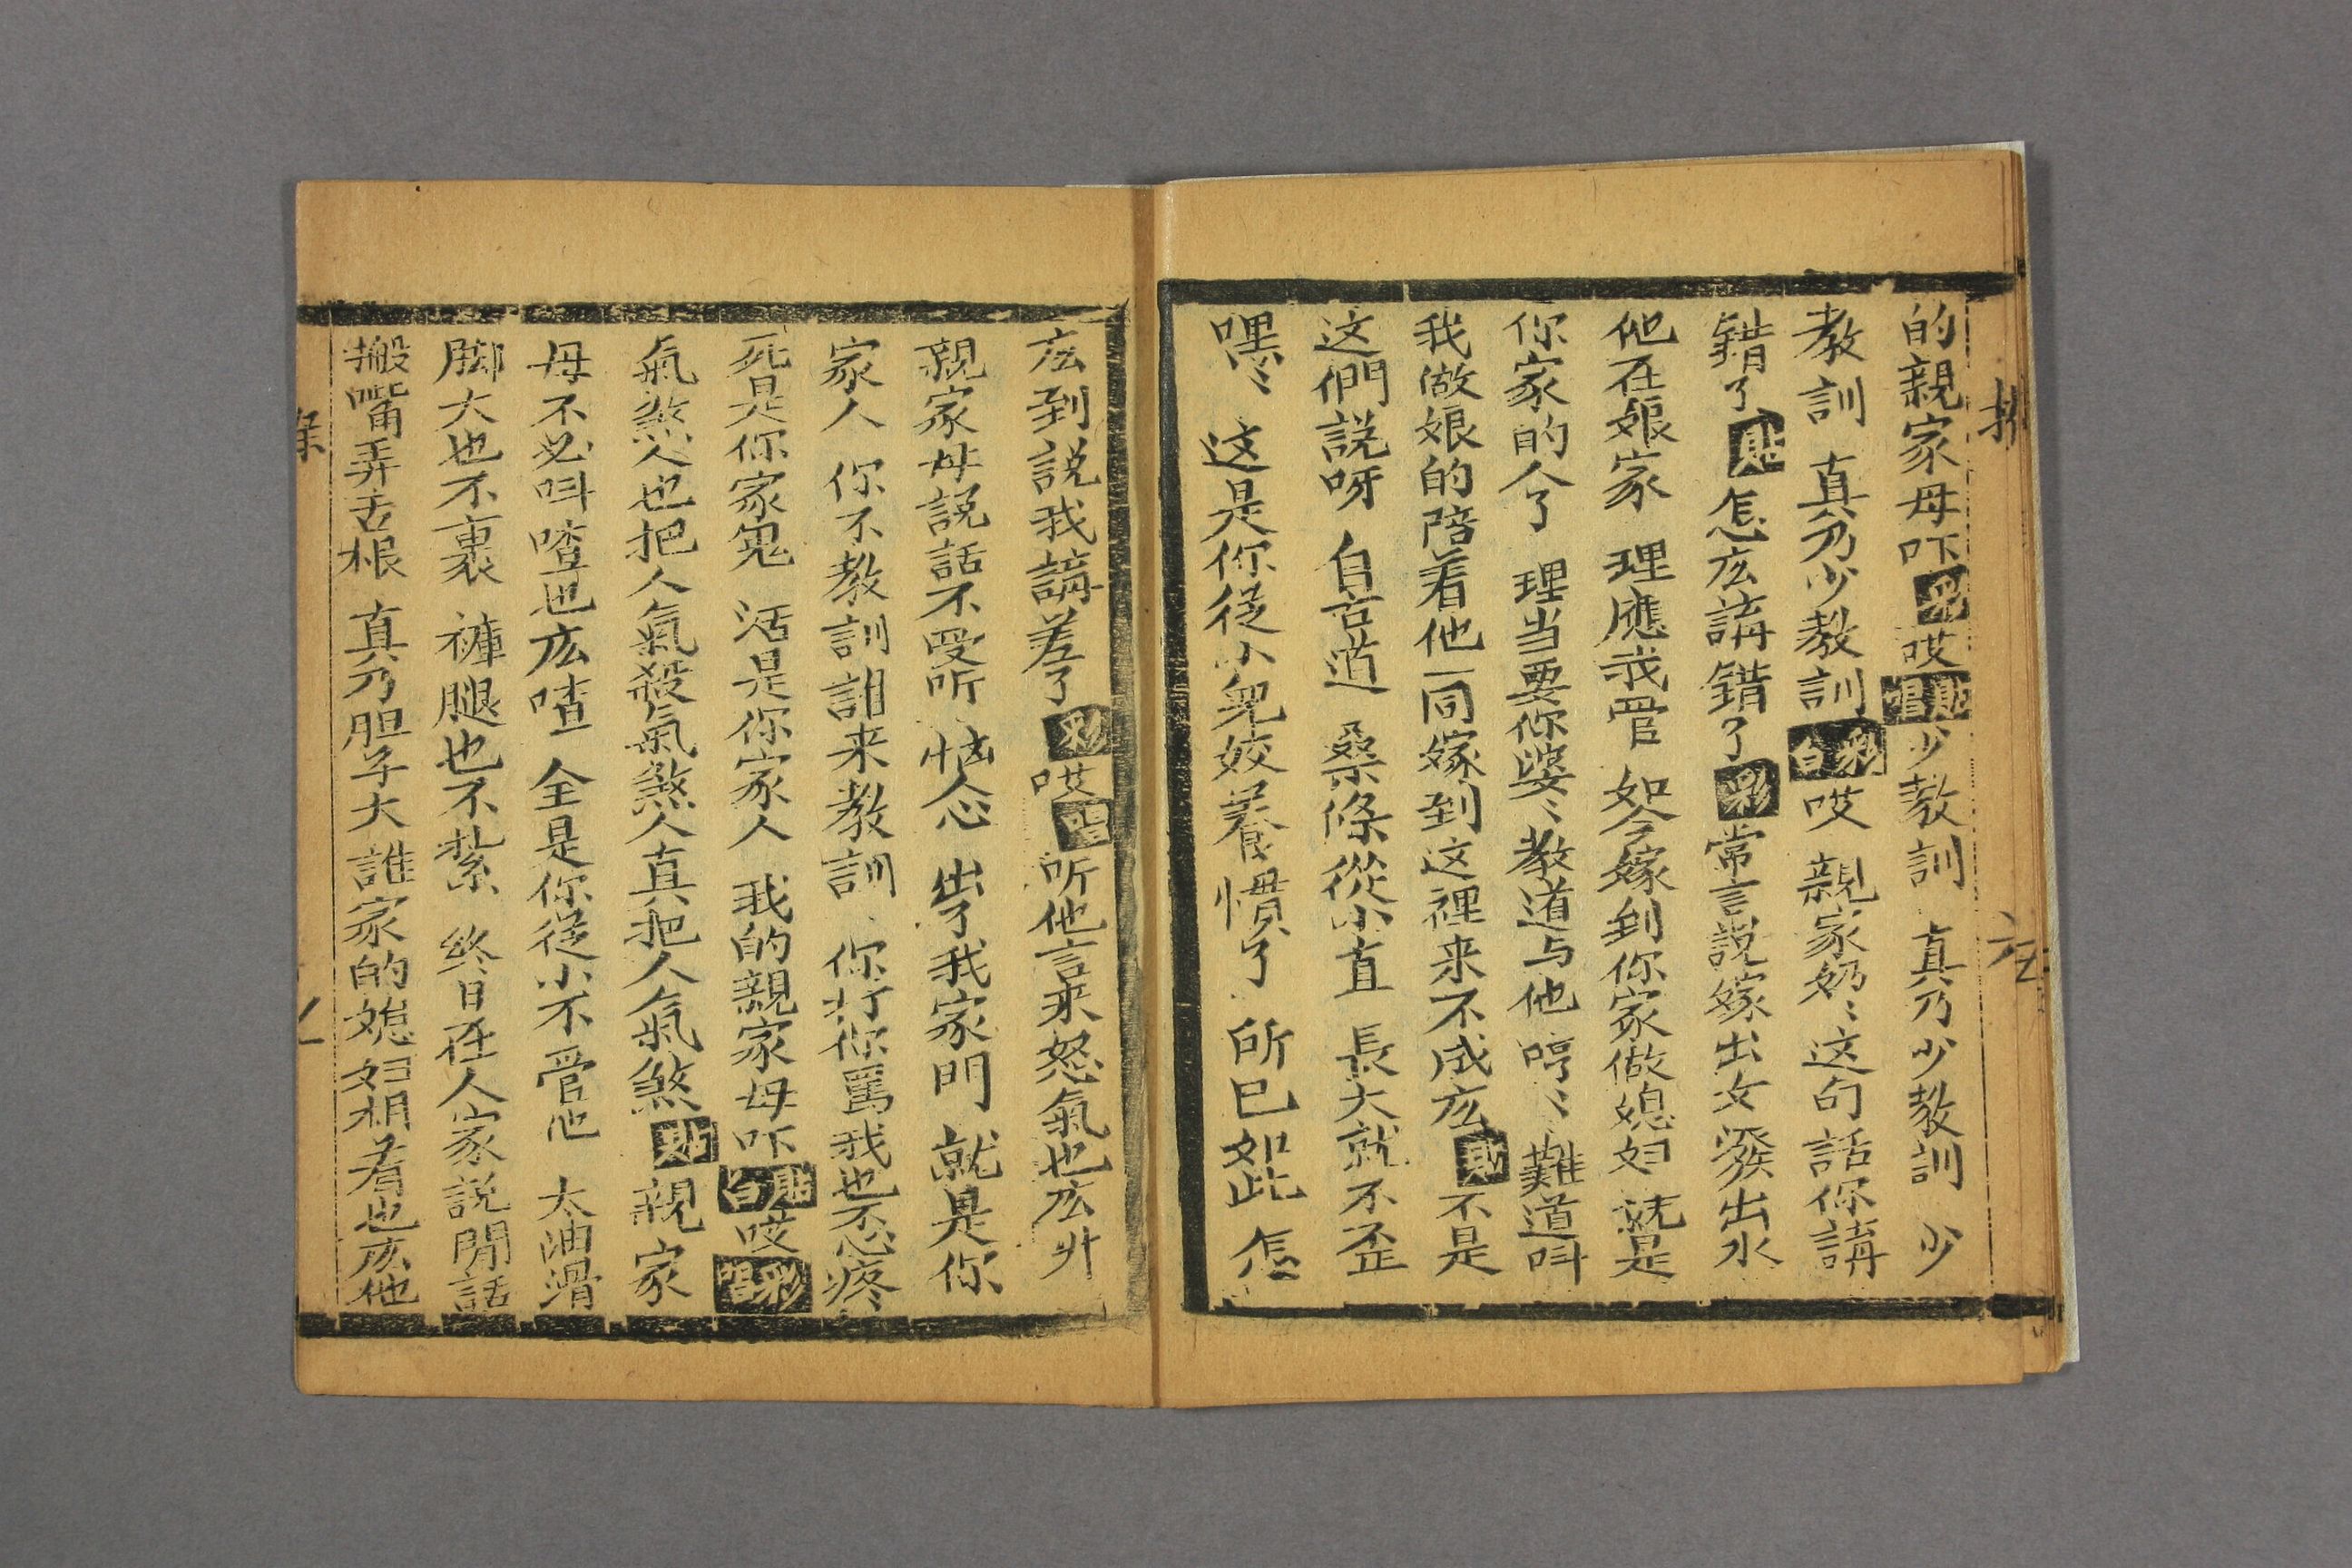 的親家母吓彩哎貼唱少教訓 真乃少教訓 少
教訓 真乃少教訓彩白哎 親家奶〻这句話你講
錯了貼怎庅講錯了彩常言說嫁出女潑出水
他在娘家 理應我管 如今嫁到你家做媳妇 就是
你家的人了 理当要你婆〻教道与他哼〻難道叫
我做娘的陪着他一同嫁到这裡来不成庅貼不是
这們説呀 自古道 桑條從小直 長大就不歪
嘿〻 这是你從小兒姣養慣了 所已如此 怎
庅到説我講差了彩哎唱听他言来怒氣也庅升
親家母説話不受听 恼人心 出了我家門 就是你
家人 你不教訓誰来教訓 你打你罵我也不心疼
死是你家鬼 活是你家人 我的親家母吓貼白哎彩唱
氣煞人也把人氣殺氣煞人真把人氣煞貼親家
母不必叫喳也庅喳 全是你從小不管他 太油滑
脚大也不裹 褲腿也不紮 終日在人家説閒話
搬嘴弄舌根 真乃胆子大 誰家的媳妇相看也庅他